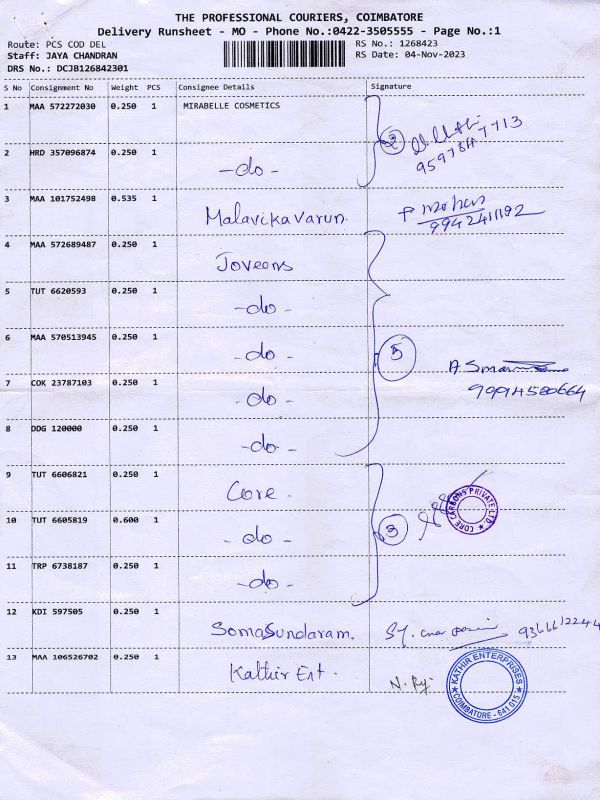 THE PROFESSIONAL COURIERS, COIMBATORE
Delivery Runsheet - MO - Phone No.:0422-3505555 - Page No.:1
Route: PCS COD DEL
RS No.: 1268423
Staff: JAYA CHANDRAN
RS Date: 04-Nov-2023
DRS No.: DCJB126842301
S No Consignment No Weight PCS Consignee Details Signature
1 MAA 572272030 0.250 1 MIRABELLE COSMETICS
2
2 HRD 357096874 0.250 1 -do-
3 MAA 101752498 0.535 1 Malavikavarun. P mohan
9942411192
4 MAA 572689487 0.250 1 Joveens
5 TUT 6620593 0.250 1 -do-
6 MAA 570513945 0.250 1 -do- 5
7 COK 23787103 0.250 1 -do-
8 DDG 120000 0.250 1 -do-
9 TUT 6606821 0.250 1 Core.
CORE CARBONS PRIVATE LTD
10 TUT 6605819 0.600 1 -do- 3
11 TRP 6738187 0.250 1 -do-
12 KDI 597505 0.250 1 SomaSundaram. 9366612244
13 MAA 106526702 0.250 1 Kathir Ent.
KATHIR ENTERPRISES
COIMBATORE - 641 015